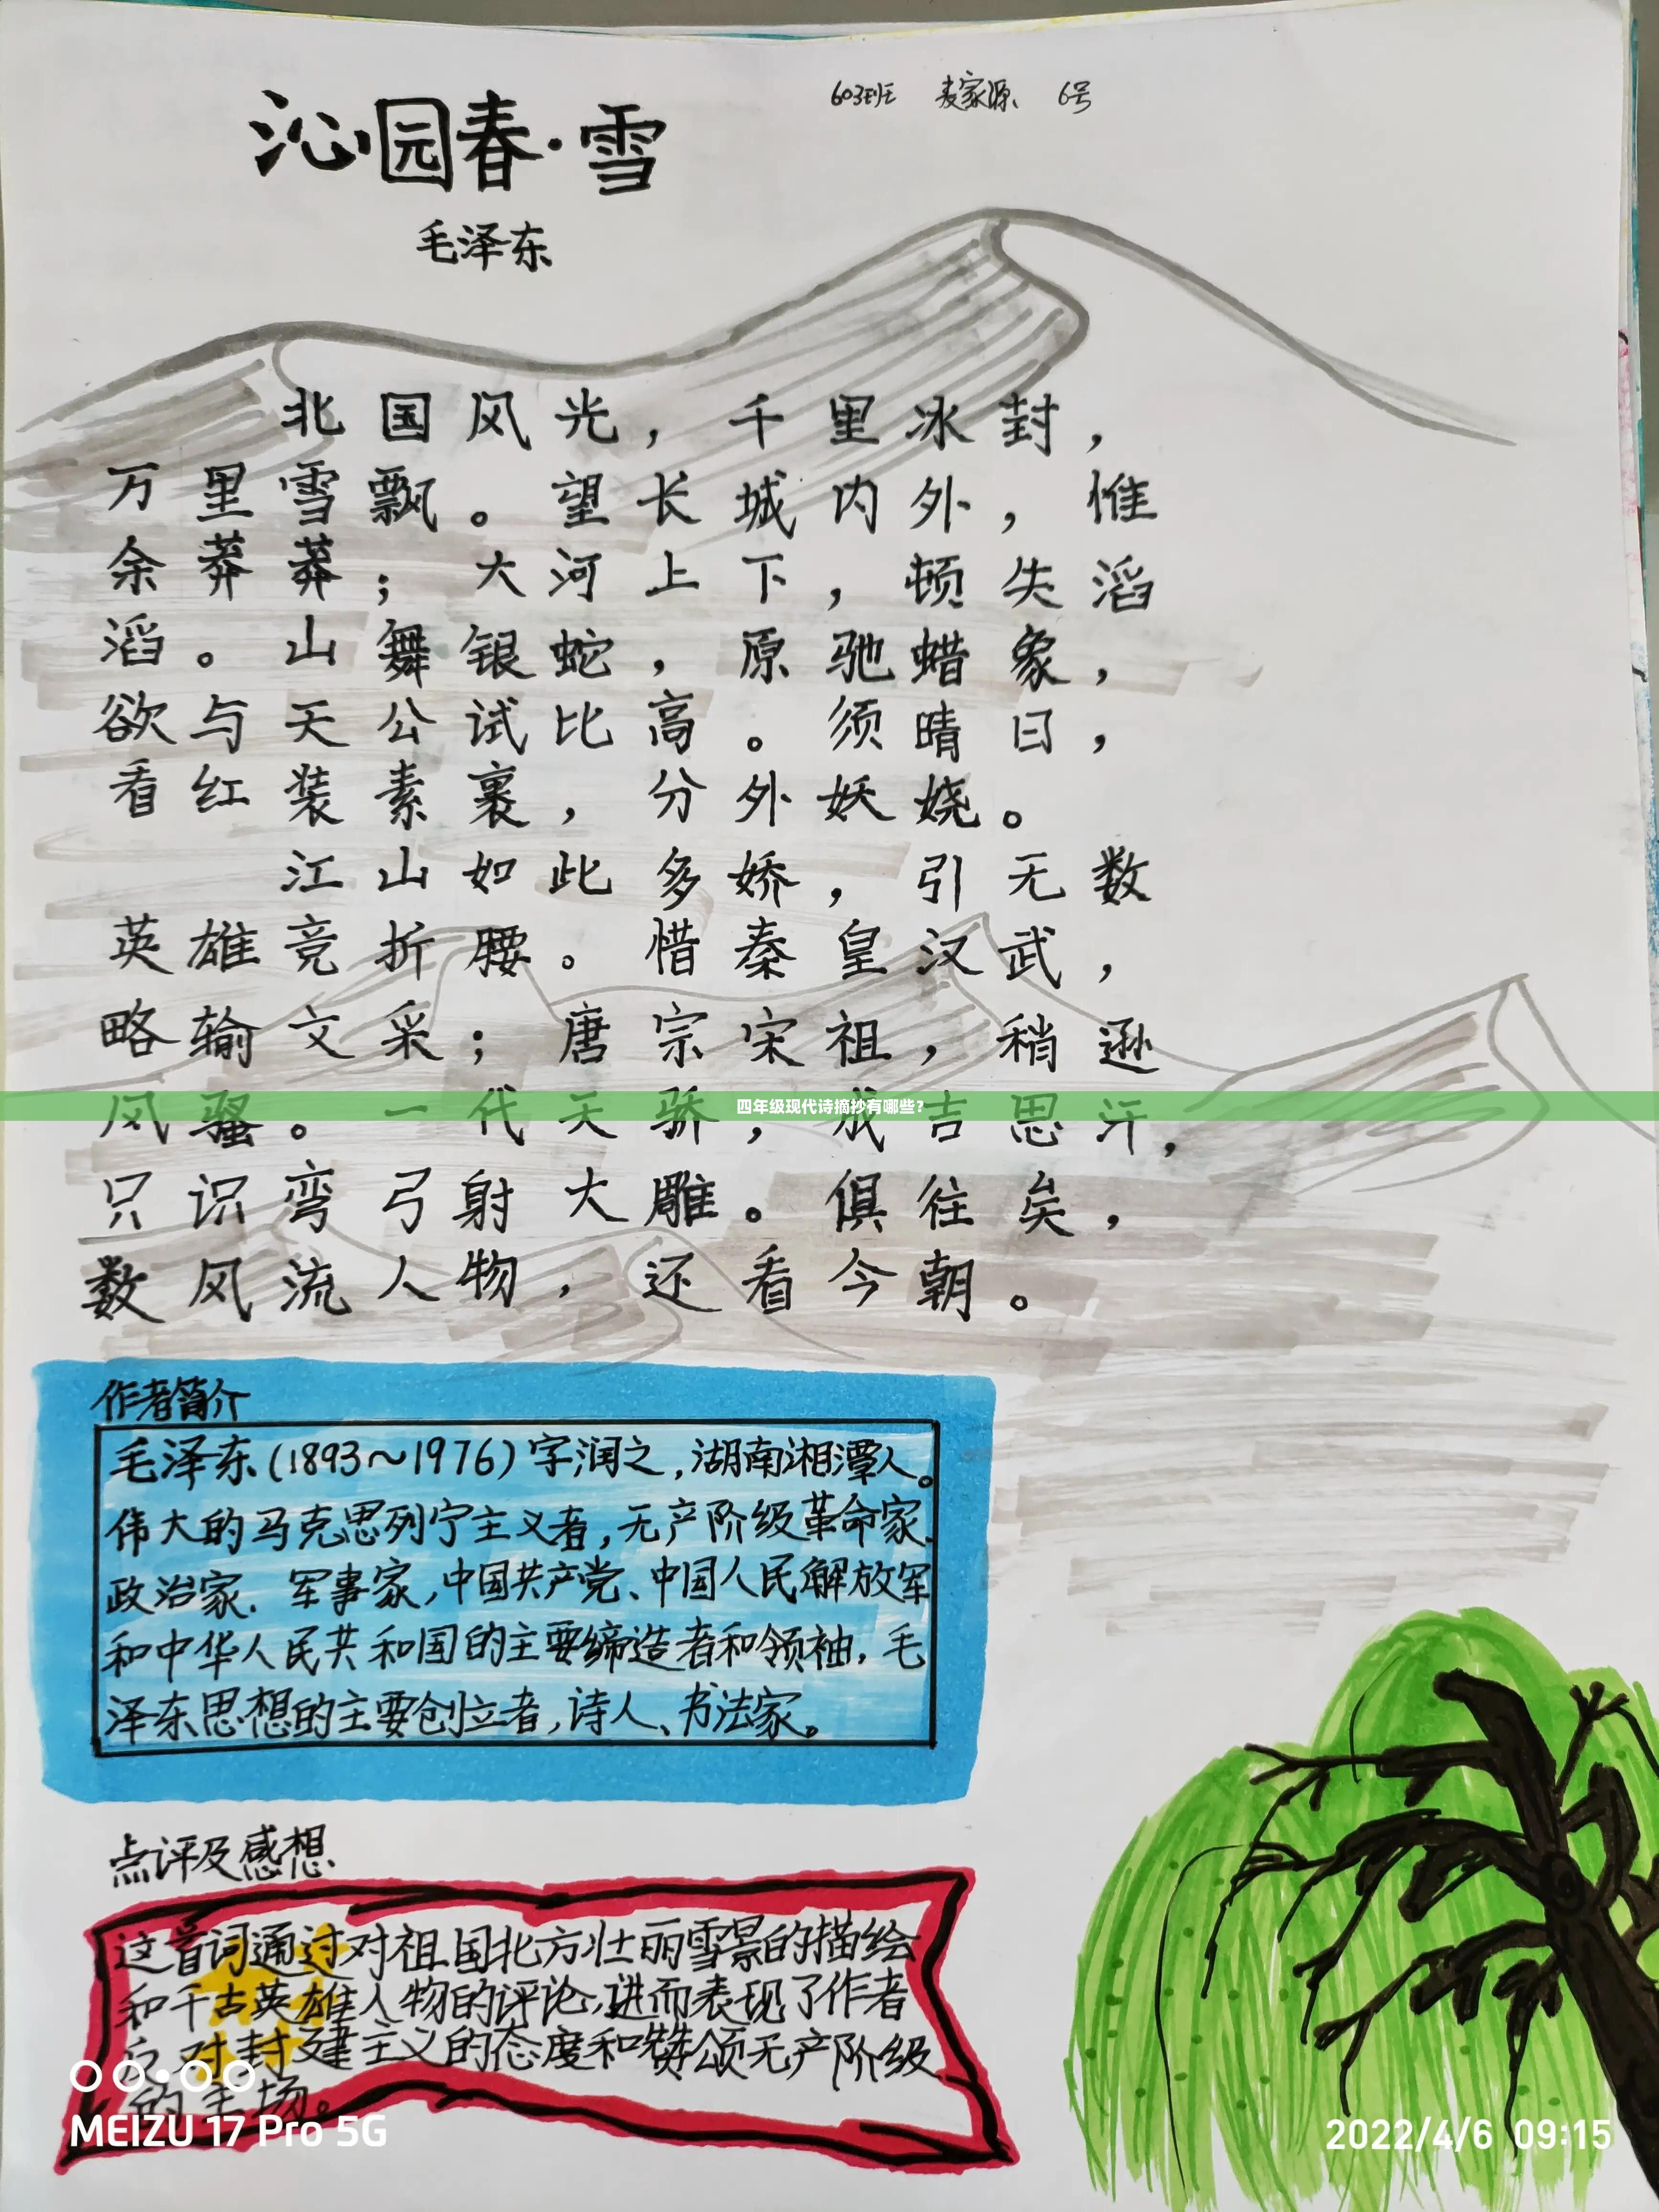 603班 麦家源 6号
沁园春·雪
毛泽东
北国风光，千里冰封，
万里雪飘。望长城内外，惟
余莽莽；大河上下，顿失滔
滔。山舞银蛇，原驰蜡象，
欲与天公试比高。须晴日，
看红装素裹，分外妖娆。
江山如此多娇，引无数
英雄竞折腰。惜秦皇汉武，
略输文采；唐宗宋祖，稍逊
风骚。一代天骄，成吉思汗，
四年级现代诗摘抄有哪些？
只识弯弓射大雕。俱往矣，
数风流人物，还看今朝。
作者简介
毛泽东(1893~1976)字润之，湖南湘潭人。
伟大的马克思列宁主义者，无产阶级革命家、
政治家、军事家，中国共产党、中国人民解放军
和中华人民共和国的主要缔造者和领袖，毛
泽东思想的主要创立者，诗人、书法家。
点评及感想
这首词通过对祖国北方壮丽雪景的描绘
和千古英雄人物的评论，进而表现了作者
反对封建主义的态度和赞颂无产阶级
的主场。
MEIZU 17 Pro 5G
2022/4/6 09:15